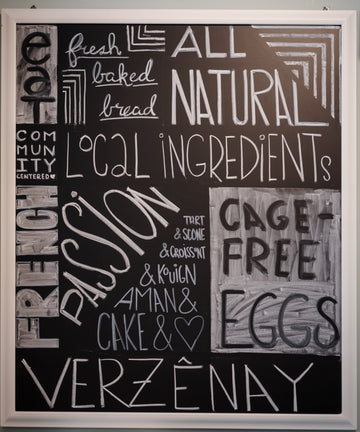 eat
fresh
baked
bread
ALL
NATURAL
COM
MUN
ITY
CENTERED♥
LOCAL INGREDIENTS
FRENCH
PASSION
TART
& SCONE
& CROISSANT
& KOUIGN
AMAN &
CAKE & ♡
CAGE-
FREE
EGGS
VERZÊNAY